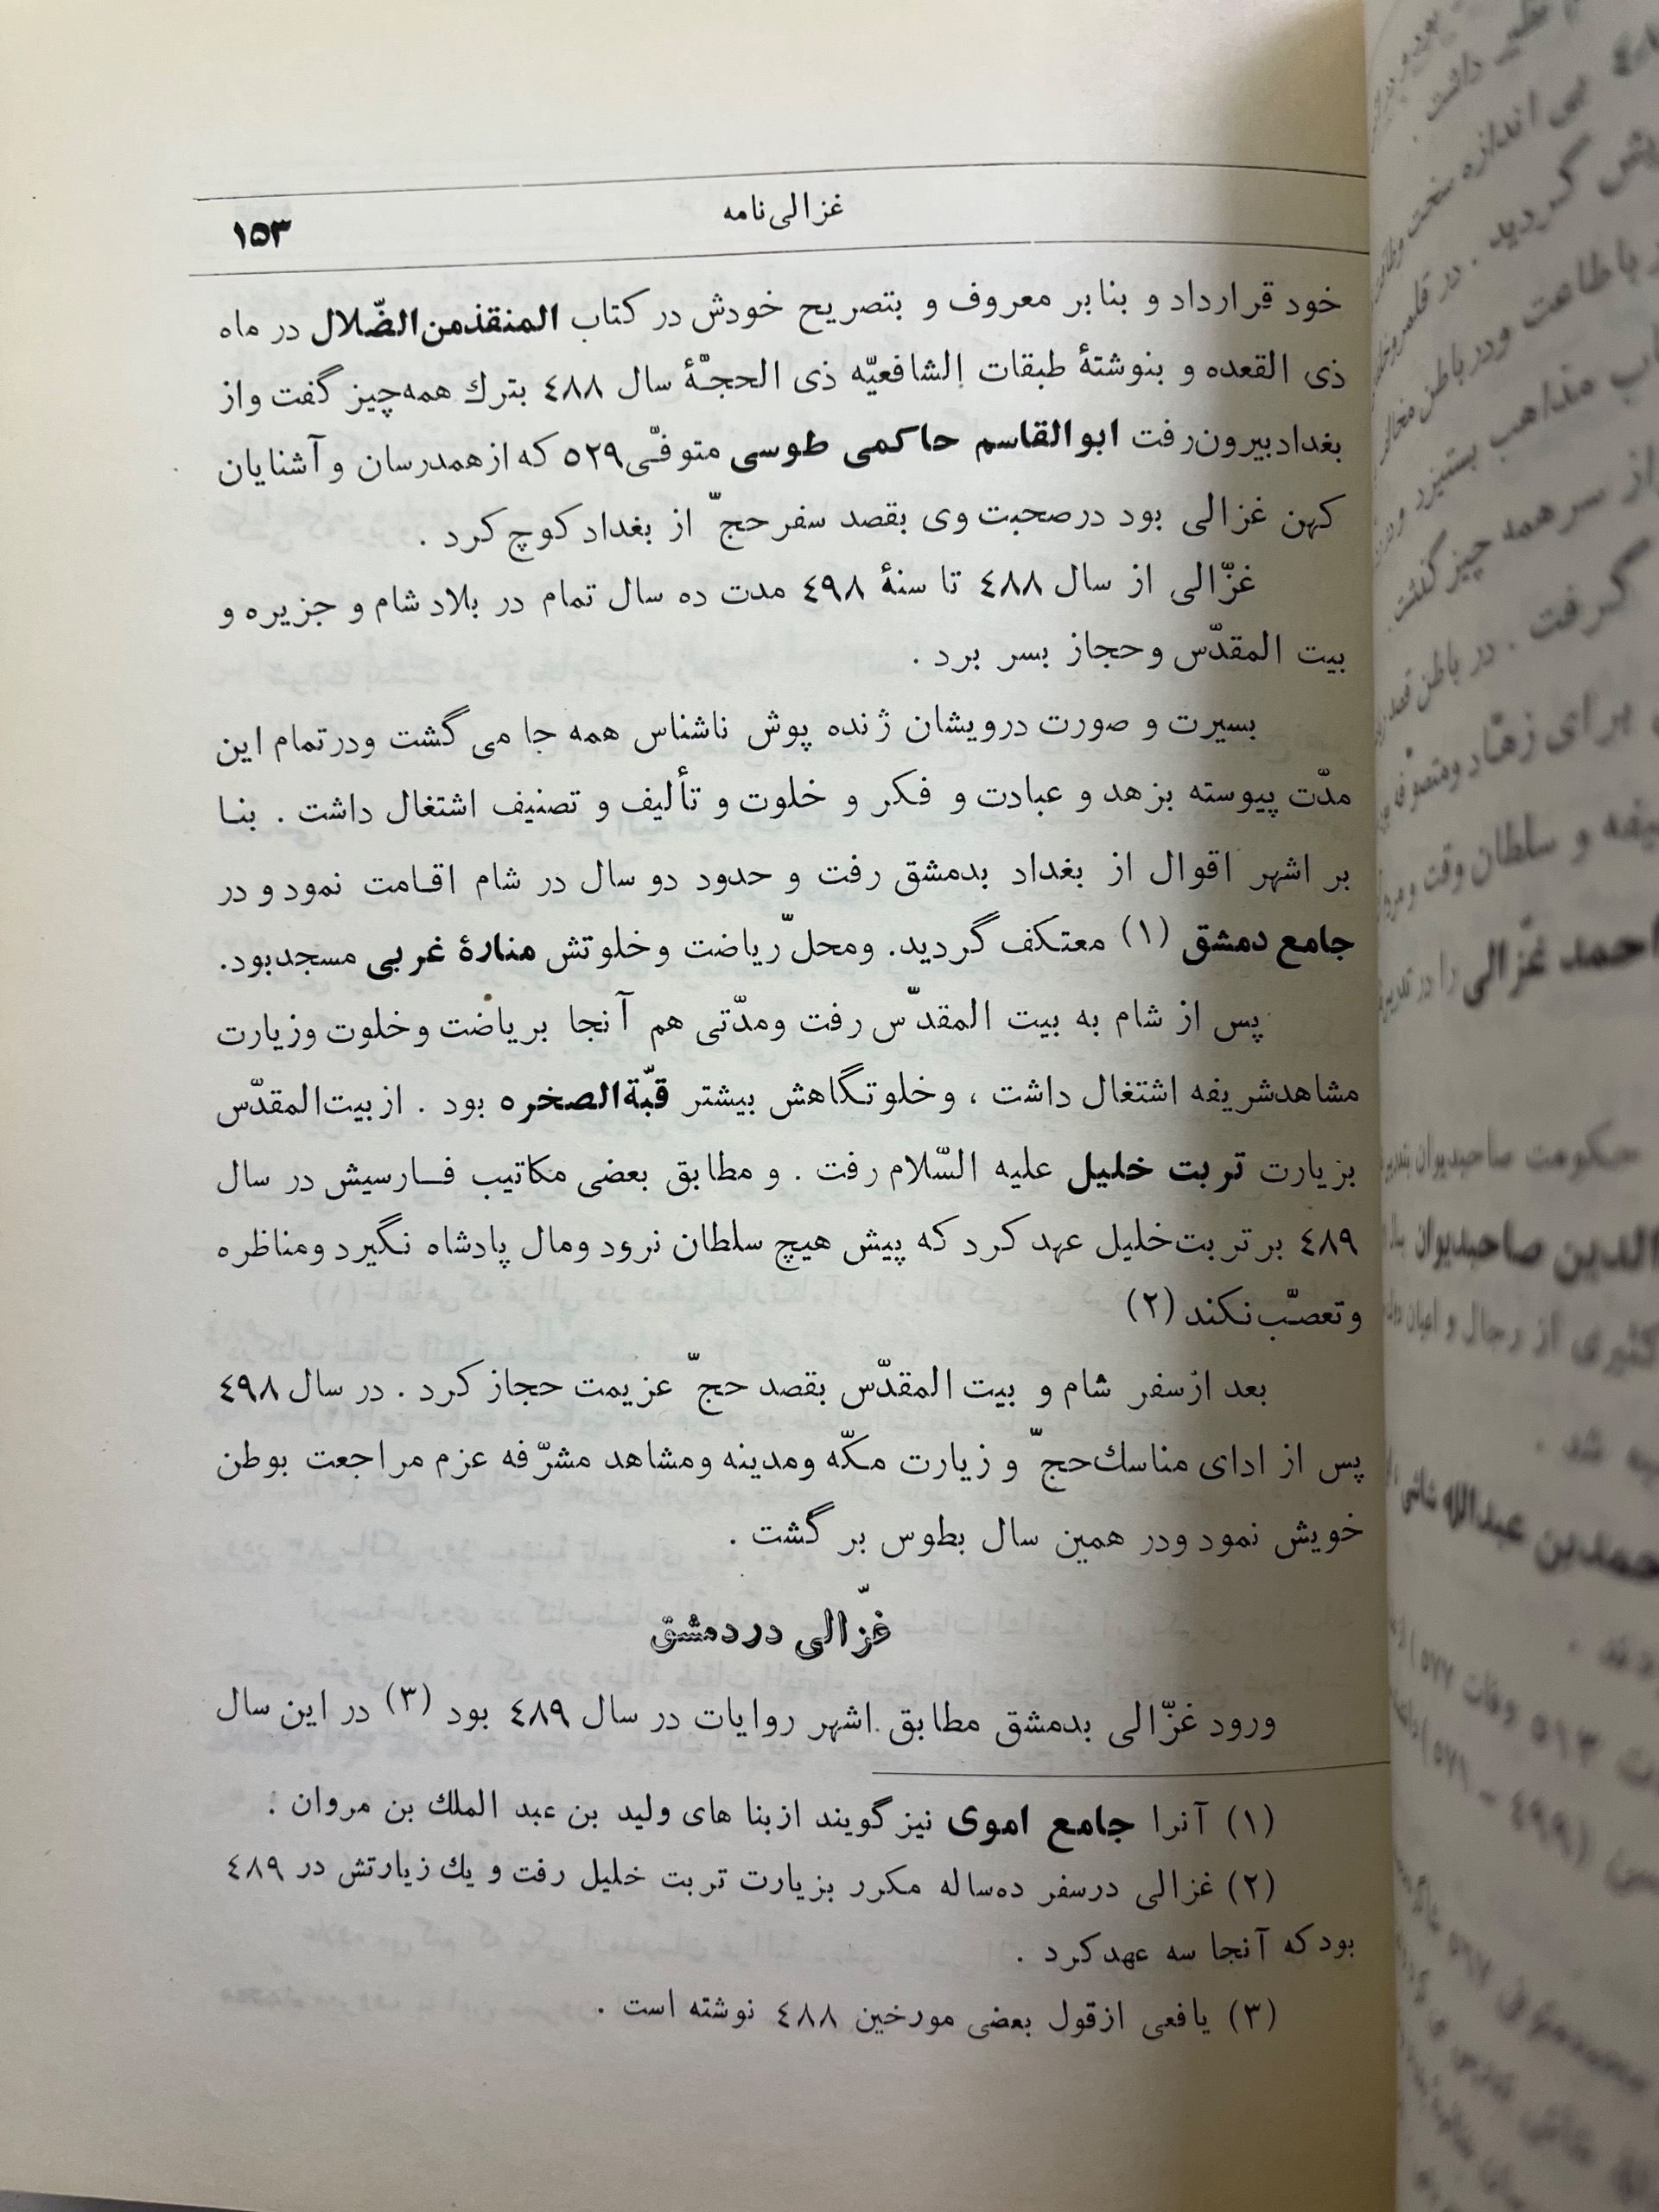 غزالی‌نامه
۱۵۳
خود قرارداد و بنابر معروف و بتصریح خودش در کتاب المنقذمن‌الضّلال در ماه
ذی القعده و بنوشتهٔ طبقات الشافعیّه ذی الحجّهٔ سال ٤٨٨ بترك همه‌چیز گفت واز
بغداد بیرون‌رفت ابوالقاسم حاکمی طوسی متوفّی ٥٢٩ که ازهمدرسان و آشنایان
کهن غزالی بود درصحبت وی بقصد سفر حجّ از بغداد کوچ کرد .
غزّالی از سال ٤٨٨ تا سنهٔ ٤٩٨ مدت ده سال تمام در بلاد شام و جزیره و
بیت المقدّس وحجاز بسر برد .
بسیرت و صورت درویشان ژنده پوش ناشناس همه جا می گشت ودرتمام این
مدّت پیوسته بزهد و عبادت و فکر و خلوت و تألیف و تصنیف اشتغال داشت . بنا
بر اشهر اقوال از بغداد بدمشق رفت و حدود دو سال در شام اقامت نمود و در
جامع دمشق (١) معتکف گردید. ومحلّ ریاضت وخلوتش منارهٔ غربی مسجدبود.
پس از شام به بیت المقدّس رفت ومدّتی هم آنجا بریاضت وخلوت وزیارت
مشاهدشریفه اشتغال داشت ، وخلوتگاهش بیشتر قبّة‌الصخره بود . ازبیت‌المقدّس
بزیارت تربت خلیل علیه السّلام رفت . و مطابق بعضی مکاتیب فارسیش در سال
٤٨٩ برتربت‌خلیل عهد کرد که پیش هیچ سلطان نرود ومال پادشاه نگیرد ومناظره
وتعصّب‌نکند (٢)
بعد ازسفر شام و بیت المقدّس بقصد حجّ عزیمت حجاز کرد . در سال ٤٩٨
پس از ادای مناسك‌حجّ و زیارت مکّه ومدینه ومشاهد مشرّفه عزم مراجعت بوطن
خویش نمود ودر همین سال بطوس بر گشت .
غزّالی دردمشق
ورود غزّالی بدمشق مطابق اشهر روایات در سال ٤٨٩ بود (٣) در این سال
(١) آنرا جامع اموی نیز گویند ازبنا های ولید بن عبد الملك بن مروان .
(٢) غزالی درسفر ده‌ساله مکرر بزیارت تربت خلیل رفت و یك زیارتش در ٤٨٩
بود که آنجا سه عهد کرد .
(٣) یافعی ازقول بعضی مورخین ٤٨٨ نوشته است .